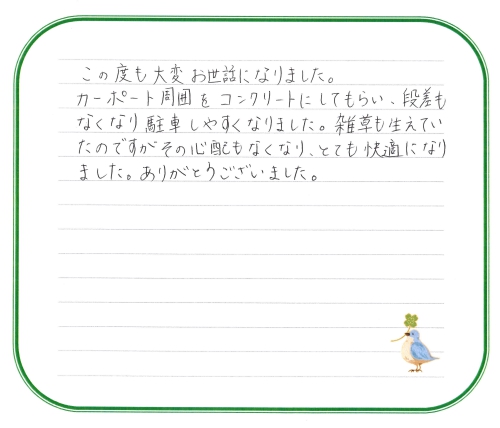 この度も大変お世話になりました。
カーポート周囲をコンクリートにしてもらい、段差も
なくなり駐車しやすくなりました。雑草も生えてい
たのですがその心配もなくなり、とても快適になり
ました。ありがとうございました。